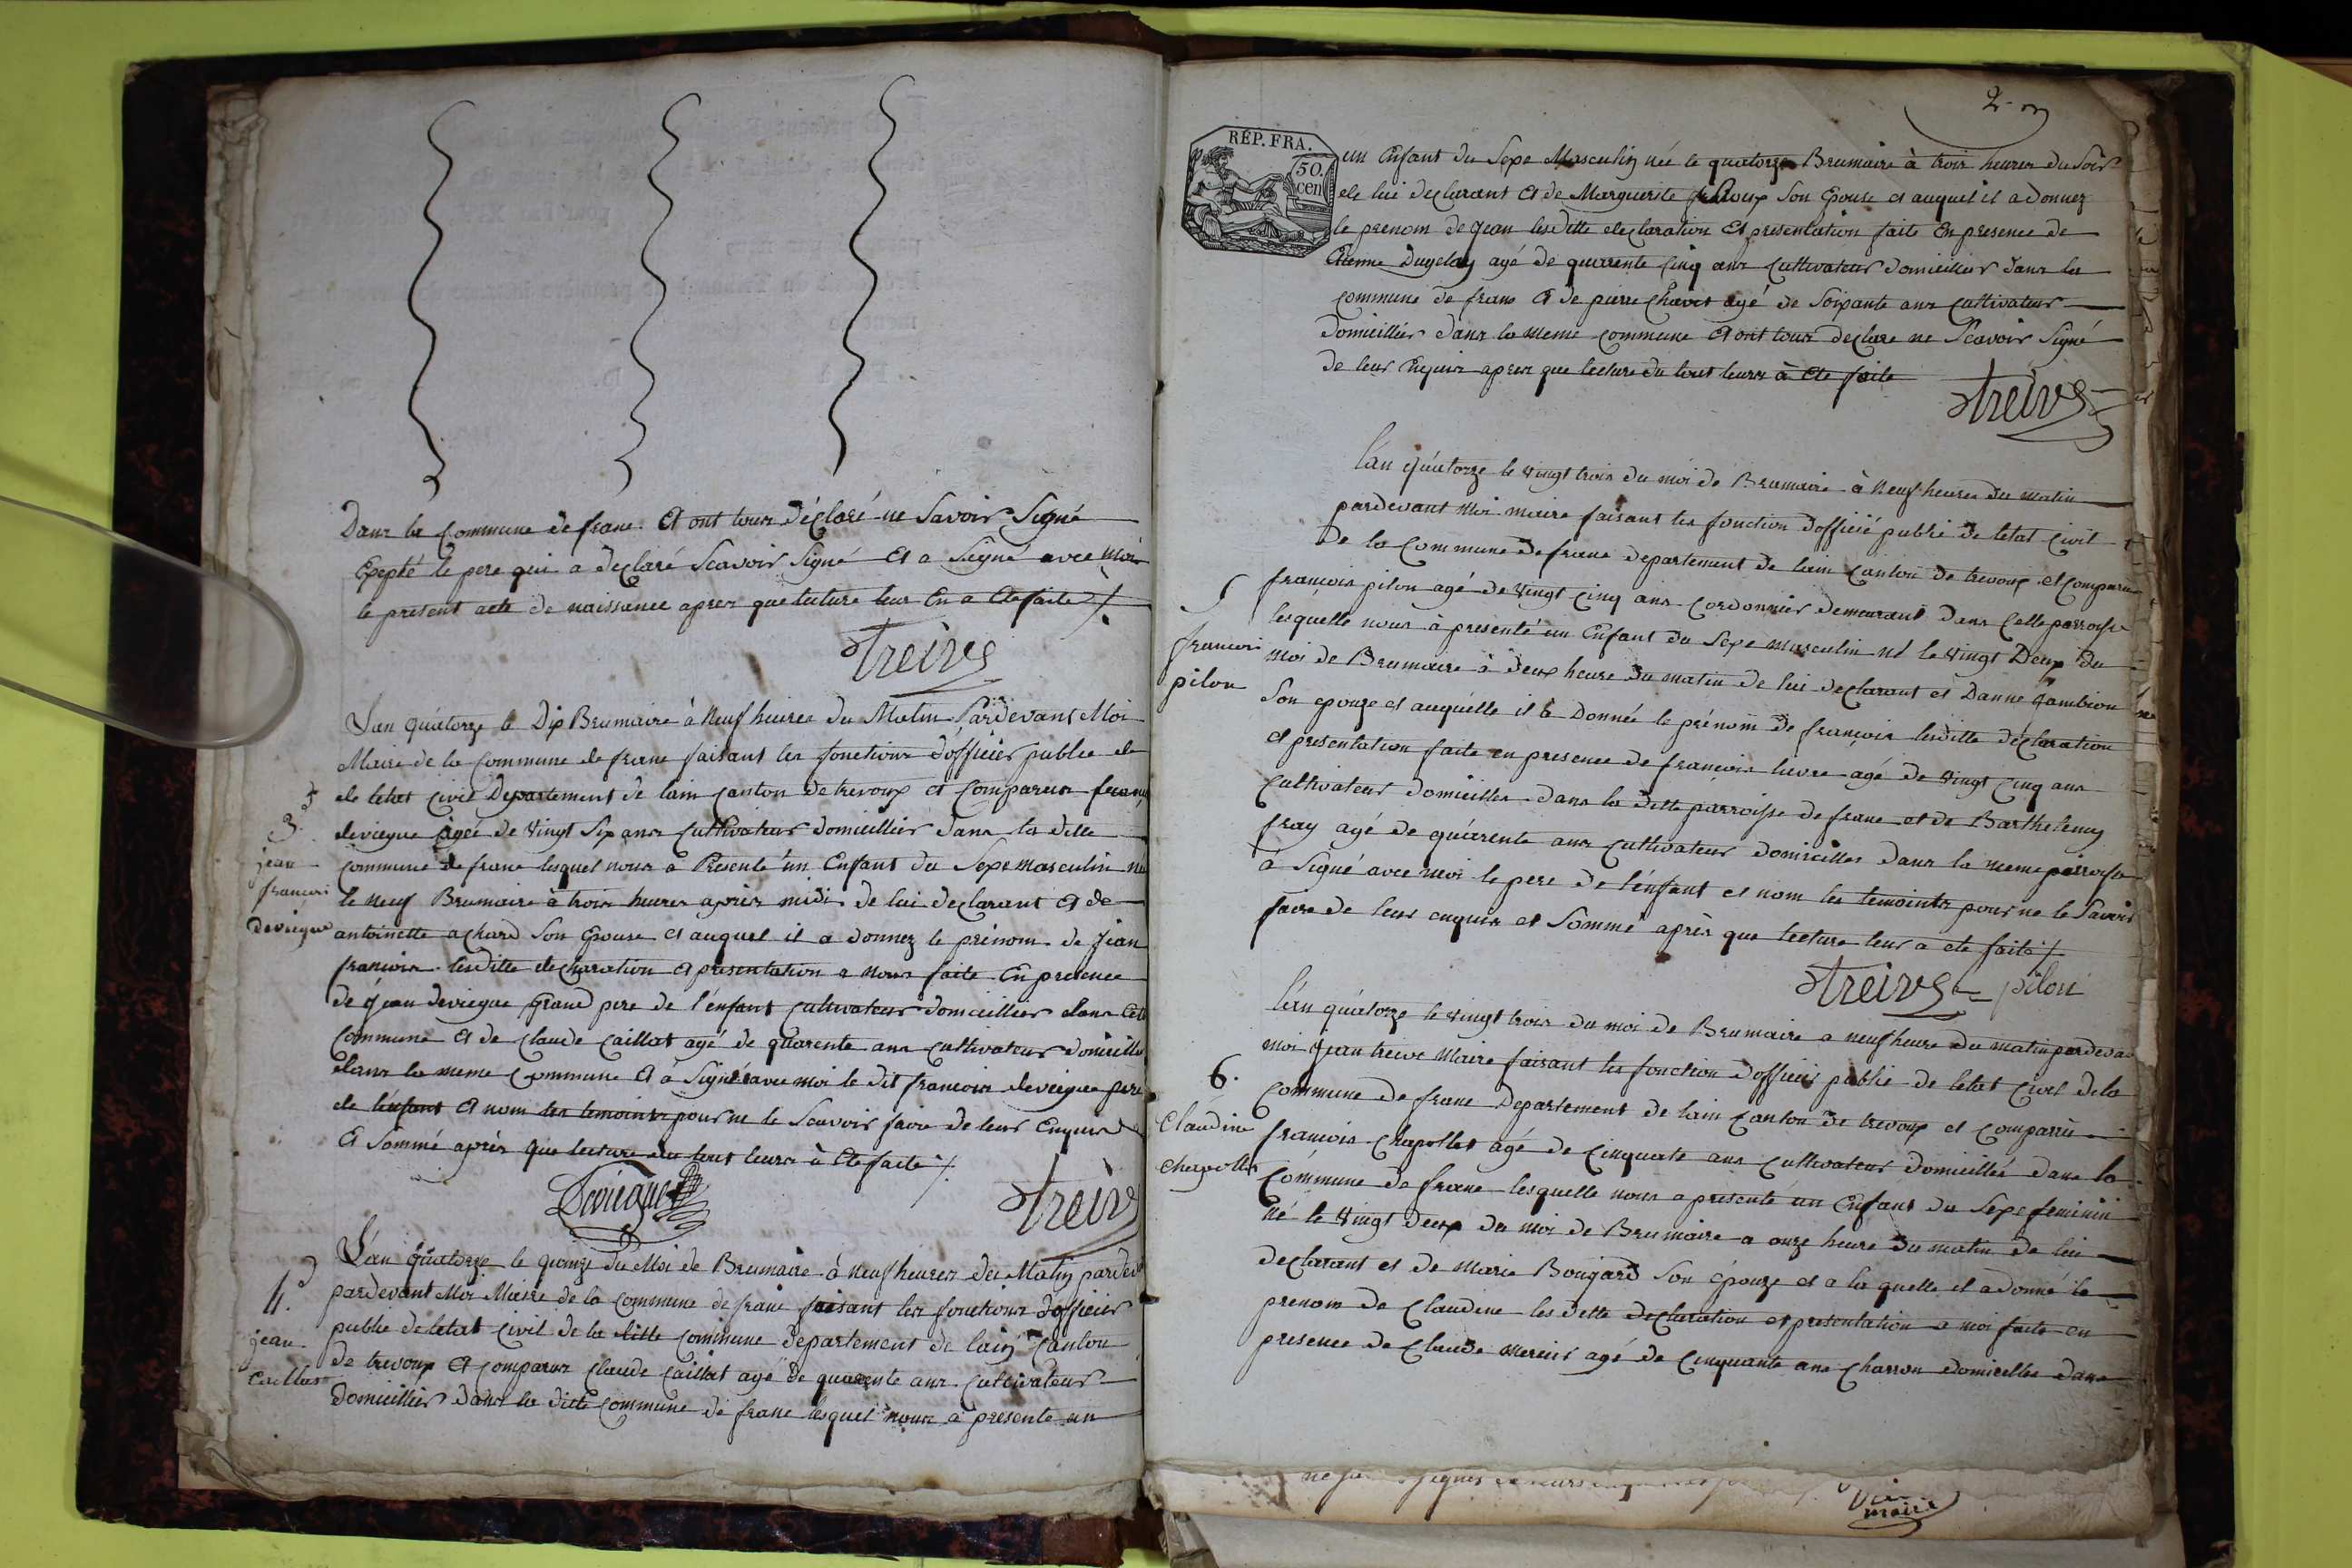 Dans la Commune de franc. Et ont tous déclaré ne Savoir Signé
Exepté le pere qui a declaré Scavoir Signé et a Signé avec moi
le present acte de naissance apres que lecture leur En a Ete faite /.
Treive
L'an quatorze le Dix Brumaire à Neuf heures du Matin Pardevant Moi
Maire de la Commune de franc faisant les fonctions d'officier public de
de letat Civil Departement de lain Canton de trevoux et Comparus franc
3e
devieque âgée de vingt Six ans Cultivateur domicillier dans la ditte
jean
commune de franc lesquel nous a Présenté un Enfant du Sexe masculin né
francois
le neuf Brumaire à trois heures après midi de lui declarant et de
devieque
antoinette achard Son Epouse et auquel il a donnez le prénom de Jean
francois lesditte declaration et presentation a nous faite En presence
de jean devieque grand pere de l'énfant Cultivateur domicillier dans Cette
Commune et de Claude Caillat agé de quarente ans Cultivateur domicillé
dans la meme Commune Et à Signé avec moi le dit francois devieque pere
de lénfant et nom les temoints pour ne le Scavoir faire de leur Enquis
Et Sommé après que lecture du tout leurs à Ete faite /.
Devieque
Treive
L'an quatorze le quinze du Moi de Brumaire à neuf heures du Matin pardev
4.
pardevant Moi Maire de la commune de franc faisant les fonctions d'officier
public de letat Civil de la ditte commune departement de lain Canton
jean
de trevoux et comparus Claude Caillat agé de quarente ans Cultivateur
Caillat
domicillier dans la dicte Commune de franc lesquel nous a présente un
2.
RÉP. FRA.
50.
cen
un Enfant du Sexe Masculin née le quatorze Brumaire à trois heures du Soir
de lui declarant et de Marguerite Son Epouse et auquel il a donnez
le prenom de Jean lesditte declaration Et presentation faite En presence de
Etienne Duyclay agé de quarente Cinq ans Cultivateur domicillier dans la
commune de franc et de pierre Chavet agé de Soixante ans Cultivateur
domicillier dans la meme commune Et ont tous declare ne Scavoir Signé
de leur Enquis apres que lecture du tout leurs à Ete faite
Treive
l'an quatorze le vingt trois du moi de Brumaire à Neuf heures du matin
pardevant Moi maire faisant les fonction dofficié public de letat civil
de la Commune de franc departement de lain Canton de trevoux et Comparu
5
françois pilon agé de vingt Cinq ans Cordonnier demeurant dans Celle parroisse
lesquelle nous a presenté un Enfant du Sexe masculin né le vingt Deux du
francois
moi de Brumaire à deux heure du matin de lui declarant et Danne Jambion
pilon
Son epouze et auquélle il à Donnée le prénom de françois lesditte déclaration
et presentation faite en presence de françois lievre agé de vingt Cinq ans
Cultivateur domicillee dans la ditte parroisse de franc et de Barthelemy
fray agé de quarente ans cultivateur domicillee dans la meme parroisse
à Signé avec moi le pere de l'énfant et nom les temoints pour ne le Savoir
faire de leur enquis et Sommé après que lecture leur a ete faite /.
Treive pilon
l'an quatorze le vingt trois du moi de Brumaire a neuf heure du matin pardevan
moi jean treive Maire faisant les fonction dofficier public de letat Civil dela
6.
Commune de franc Departement de lain Canton de trevoux et comparu
Claudine
francois Chapollet agé de cinquate ans Cultivateur domicillié dans la
Chapollet
Commune de franc lesquelle nous a presenté un Enfant du Sexe feminin
né le vingt deux du moi de Brumaire a onze heure du matin de lui
declarant et de Marie Bougard Son épouze et a la quelle il a donné le
prenom de Claudine les dette declaration et presentation a moi faite en
presence de Claude agé de Cinquante ans Charron domicillee dans
maire